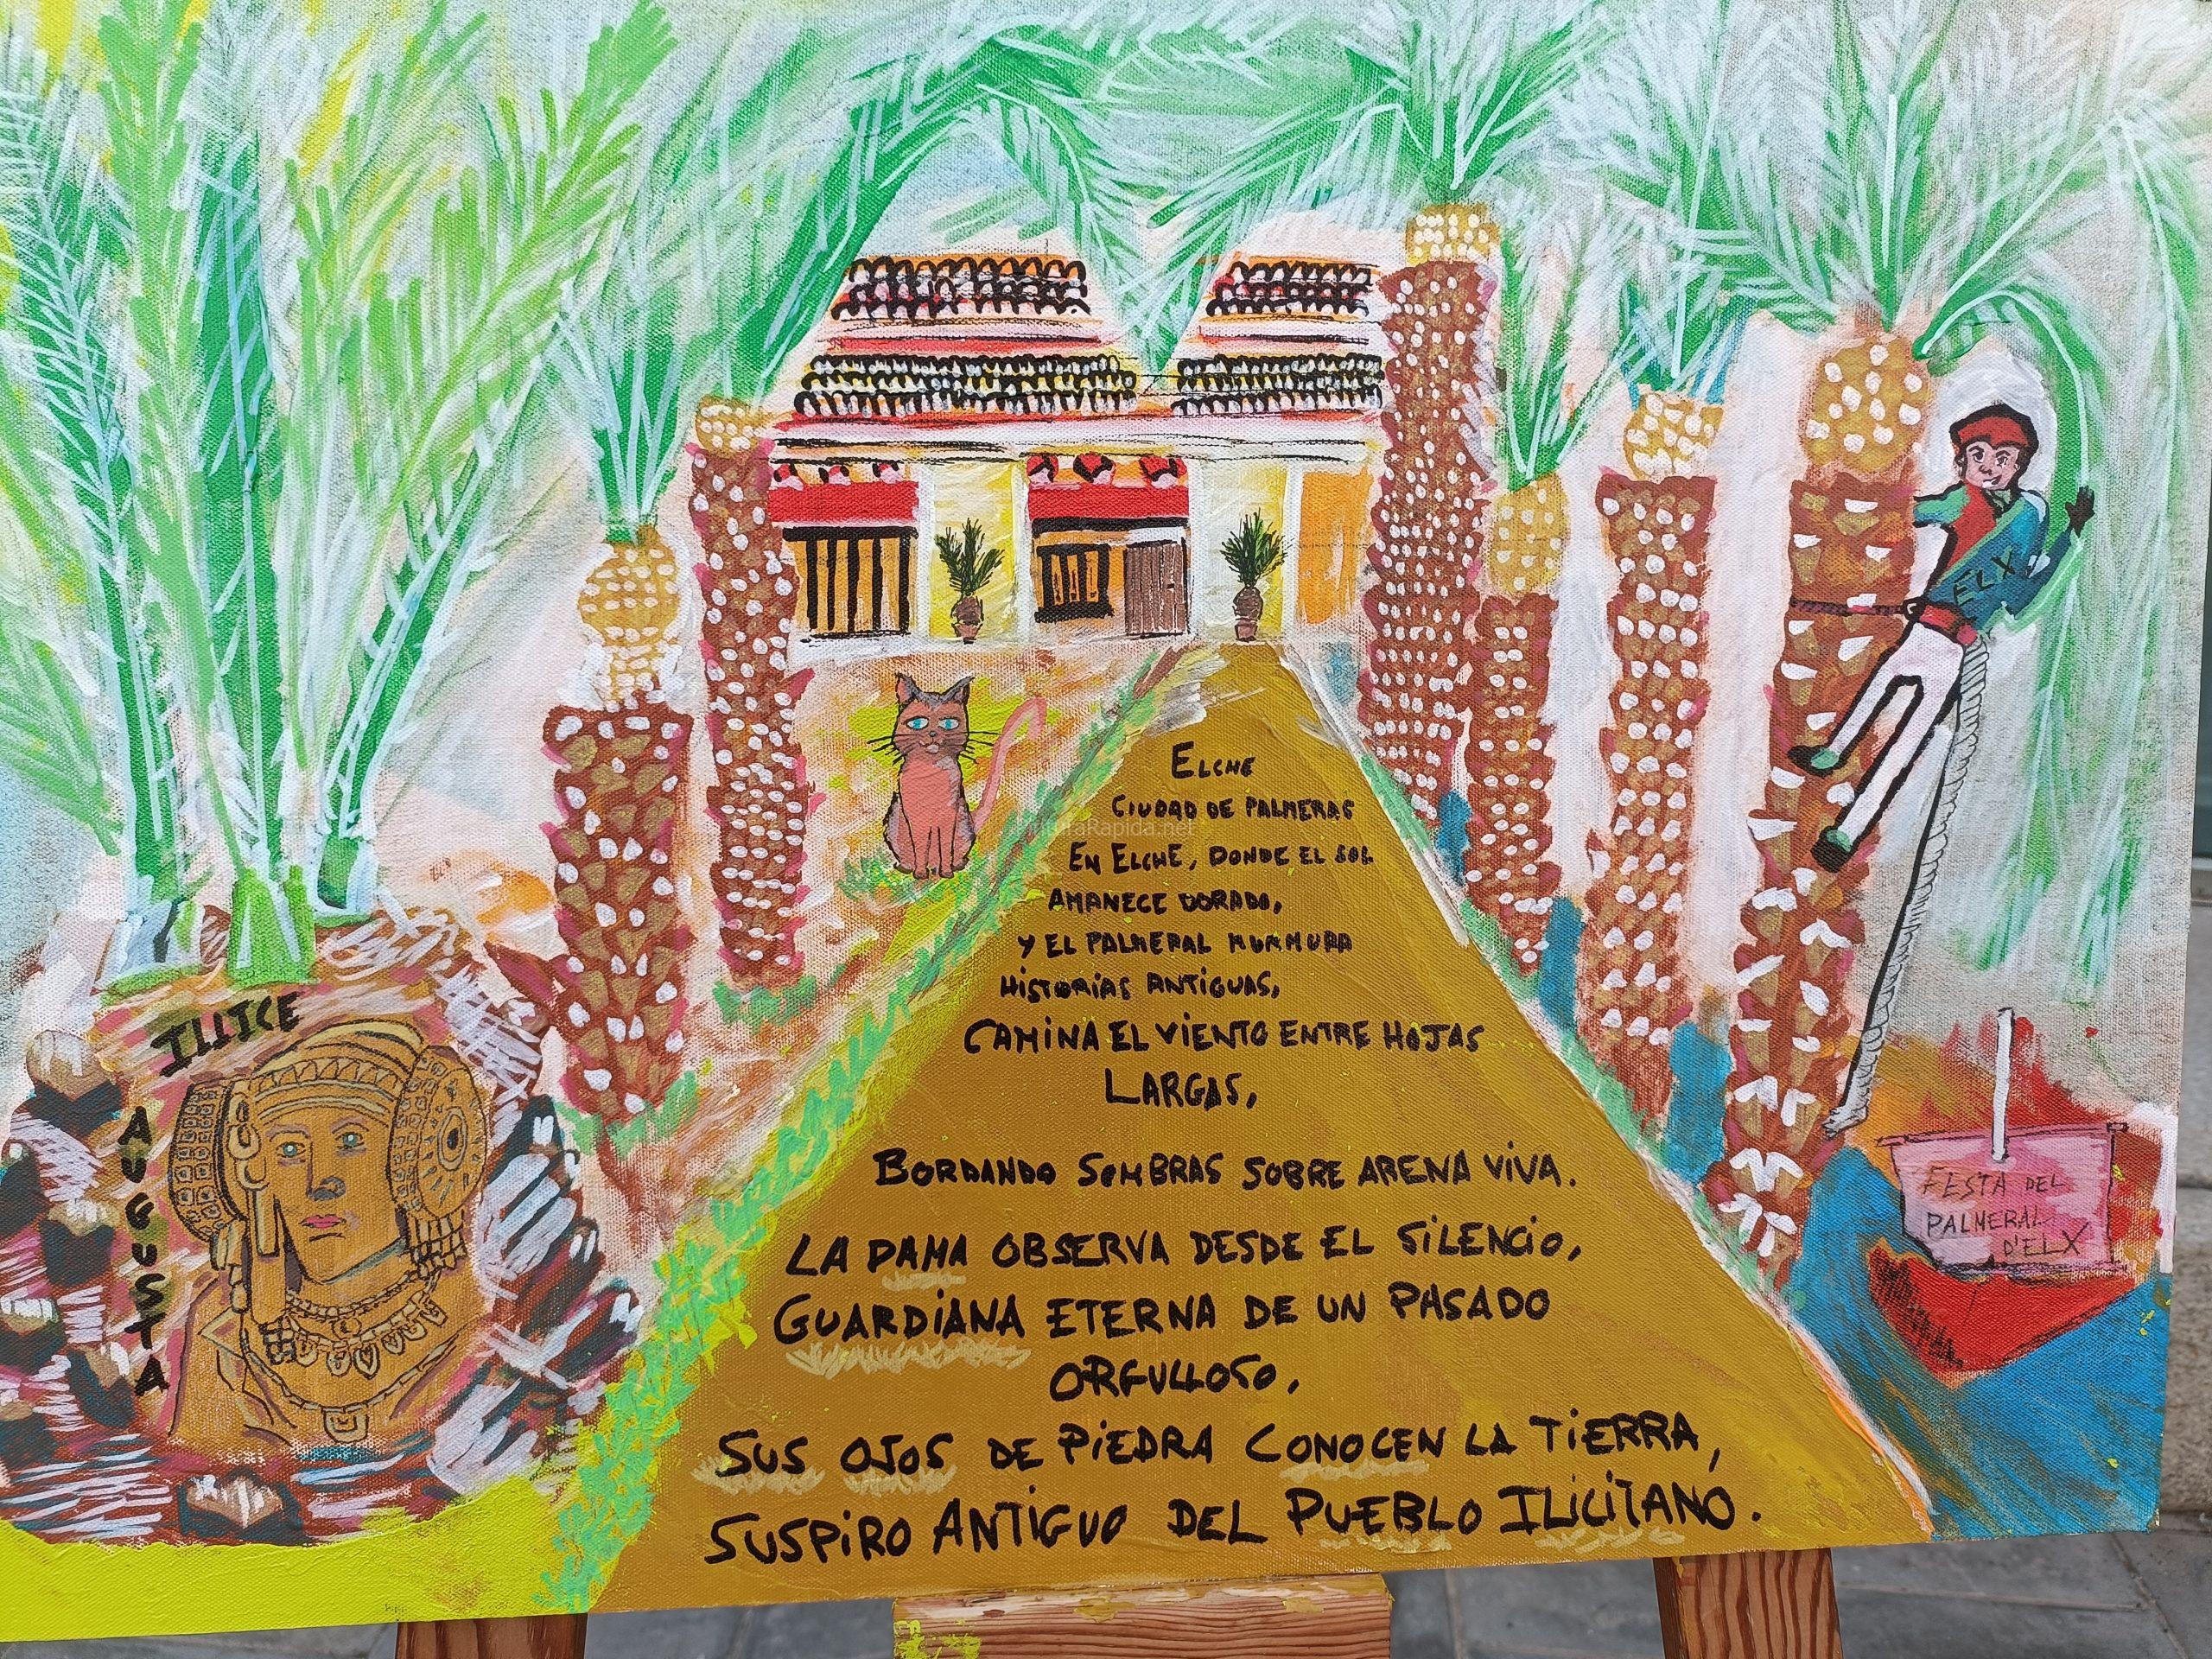 ELCHE
CIUDAD DE PALMERAS
EN ELCHE, DONDE EL SOL
AMANECE DORADO,
Y EL PALMERAL MURMURA
HISTORIAS ANTIGUAS,
CAMINA EL VIENTO ENTRE HOJAS
LARGAS,
BORDANDO SOMBRAS SOBRE ARENA VIVA.
LA DAMA OBSERVA DESDE EL SILENCIO,
GUARDIANA ETERNA DE UN PASADO
ORGULLOSO,
SUS OJOS DE PIEDRA CONOCEN LA TIERRA,
SUSPIRO ANTIGUO DEL PUEBLO ILICITANO.
ILLICE
AUGUSTA
ELX
FESTA DEL
PALMERAL
D'ELX
PinturaRapida.net